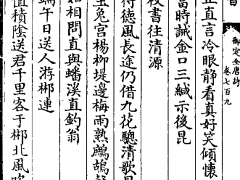 御定全唐詩
卷七百九
正直言冷眼靜看真好笑傾懷
當時誡金口三緘示後昆
校書往清源
待德風長途仍借九花驄清歌
玉兔宮楊柳堤邊梅雨熟鷓鴣
如相問直與磻溪直釣翁
端午日送人游郴連
值積陰送君千里客于郴北風吹